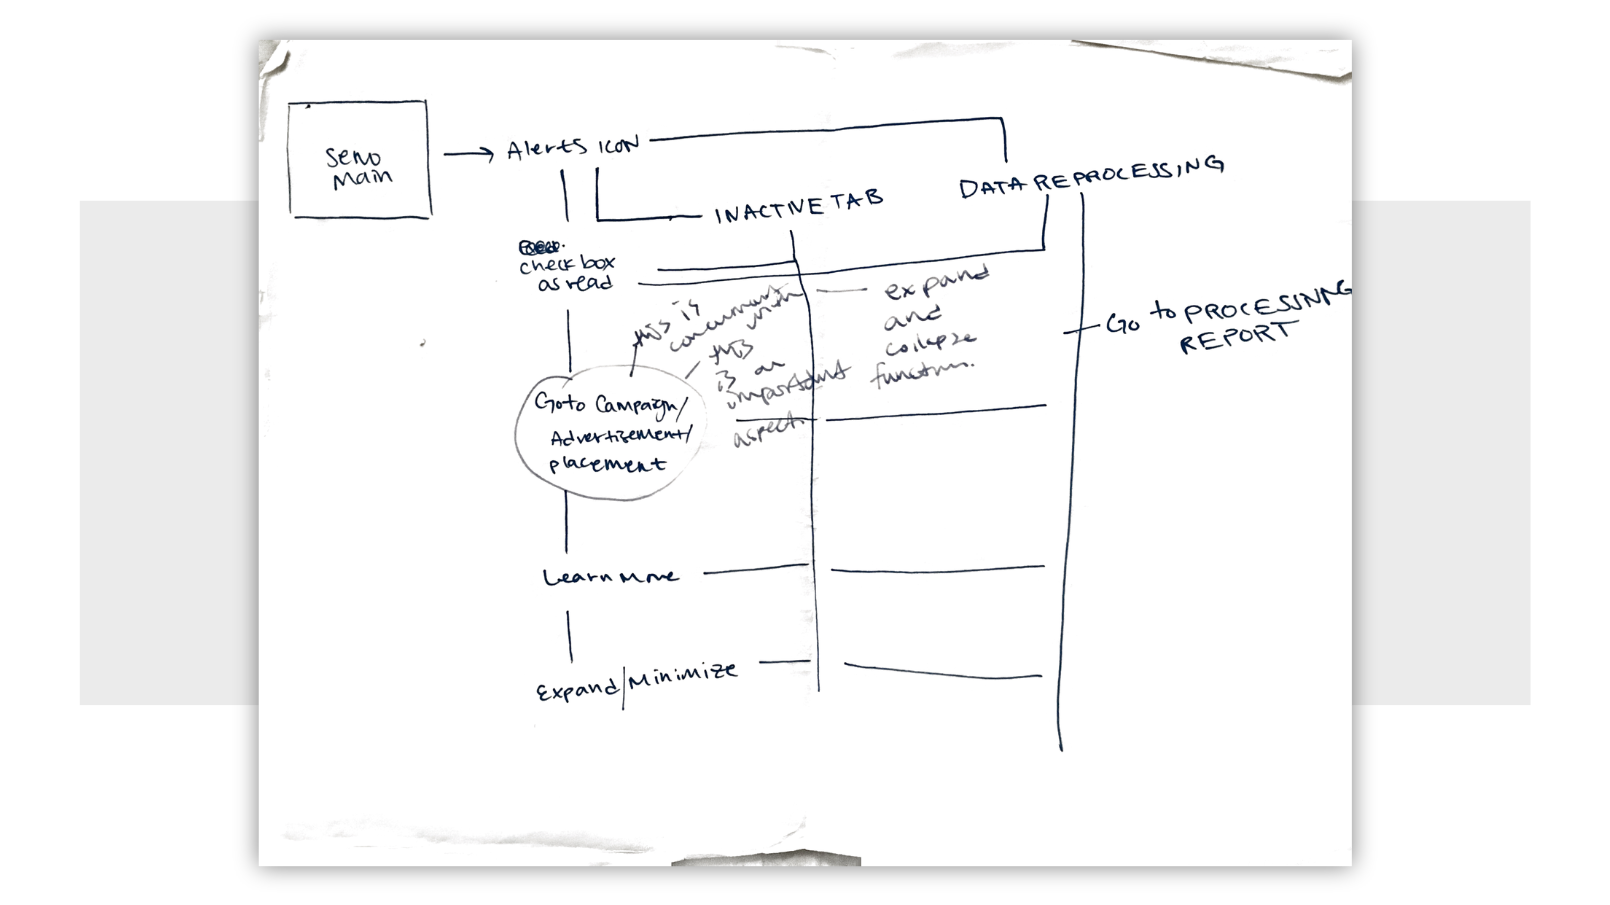 SENO
Main
Alerts ICON
INACTIVE TAB
DATA REPROCESSING
check box
as read
this is
concurrent
with
this
is an
important
aspect
expand
and
collapse
function.
Go to PROCESSINNG
REPORT
Goto Campaign/
Advertisement/
placement
Learn More
Expand/Minimize